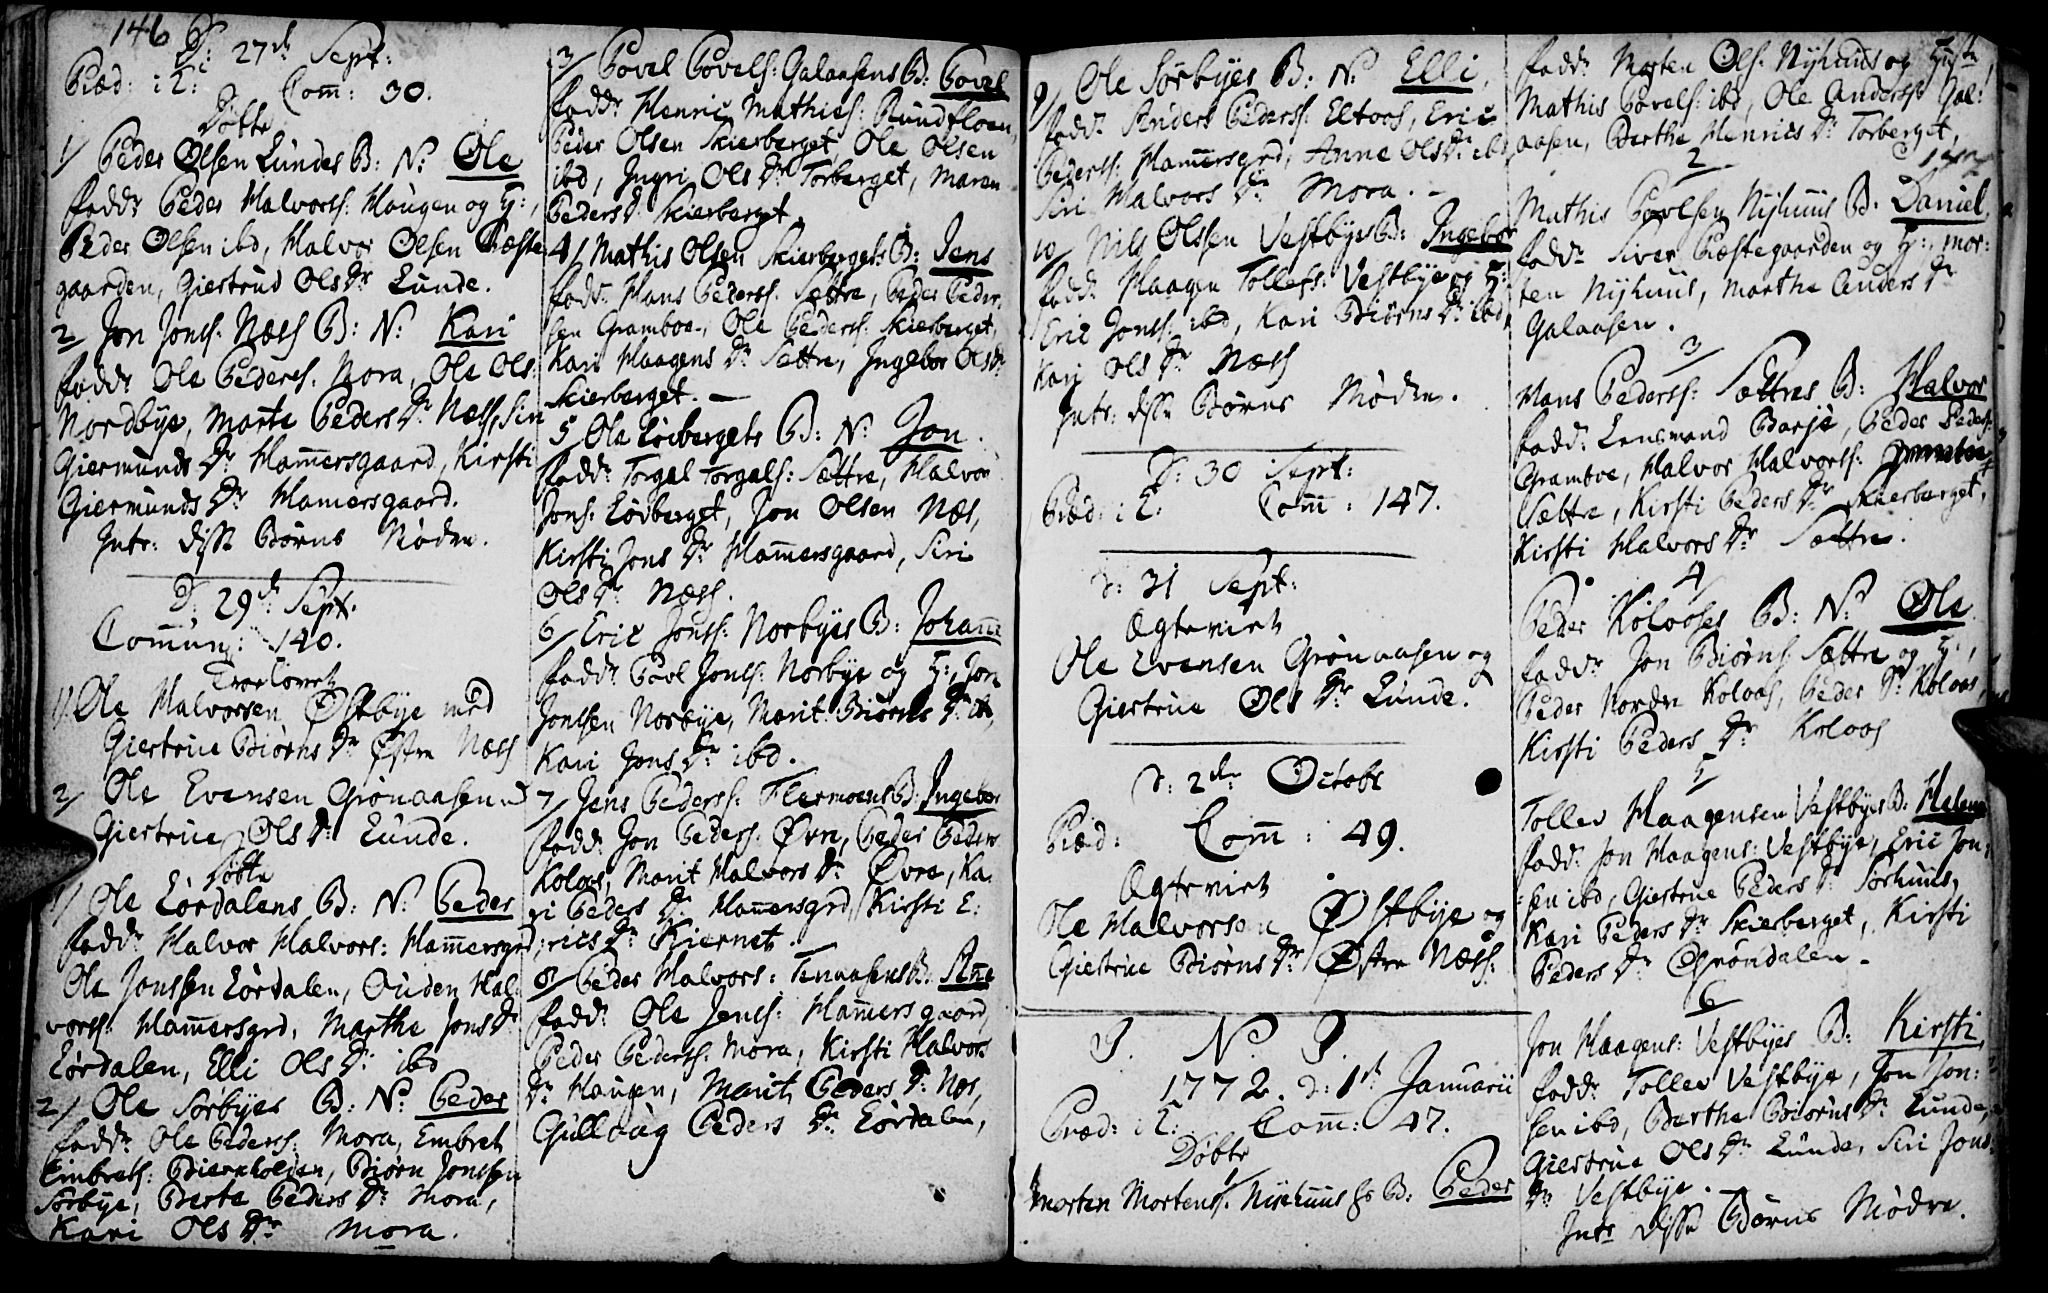 146
D: 27de Sept:
Præd: i T: Com̅: 30.
Döbte
1/ Peder Olsen Lundes B: N: Ole
fadd: Peder Halvorss: Haugen og H:,
Peder Olsen ibd, Halvor Olsen Præste
gaarden, Giertrud Ols Dr Lunde.
2 Jon Jonss: Næss B: N: Kari
fadd: Ole Pederss: Mora, Ole Ols:
Nordbye, Marte Peders Dr Næss, Siri
Giermunds Dr Ham̅ersgaard, Kirsti
Giermunds Dr Ham̅ersgaard.
Intr: disse Börns Mödre.
D: 29de Sept.
Com̅un: 140.
Troelovet
1/ Ole Halvorsen Østbye med
Giertrue Biörns Dr Østre Næss
2/ Ole Evensen Grönaasen
Giertrue Ols Dr Lunde.
Döbte
1/ Ole Lördalens B: N: Peder
fadd: Halvor Halvors: Ham̅ersgrd,
Ole Jonssen Lördalen, Ouden Hal-
vorss: Ham̅ersgrd, Marthe Jons Dr
Lördalen, Elli Ols Dr: ibd
2/ Ole Sörbyes B: N: Peder
fadd: Ole Pederss: Mora, Embret
Embrets: Bierkholden, Biörn Jonssen
Sörbye, Berte Peders Dr Mora,
Kari Ols Dr Mora.
3/ Povel Povels: Galaasens B: Povel
fadd: Henric Mathies: Rundfloen,
Peder Olsen Skierberget, Ole Olsen
ibd, Ingri Ols Dr Torberget, Maren
Peders Dr Skierberget.
4/ Mathis Olsen Skierbergets B: Jens
fadd: Hans Pederss: Sættre, Peder Peder-
sen Gramboe, Ole Pederss: Skierberget,
Kari Haagens Dr Sættre, Ingebor Ols Dr
Skierberget.
5 Ole Löcbergets B: N: Jon.
fadd: Torgal Torgals: Sættre, Halvor
Jons: Lövberget, Jon Olsen Næs,
Kirsti Jons Dr Ham̅ersgaard, Siri
Ols Dr Næss.
6/ Eric Jonss: Norbyes B: Johan̅e
fadd: Povl Jonss: Norbye og H:, Jon
Jonssen Norbye, Marit Biörns Dr ib,
Kari Jons Dr ibd.
7/ Jens Pederss: Flermoens B: Ingebor
fadd: Jon Peders: Øvre, Peder Peders
Koloos, Marit Halvors Dr Øvre, Ka-
ri Peders Dr Ham̅ersgrd, Kirsti E:
rics Dr Kiernet.
8/ Peder Halvors: Tenaasens B: An̅e
fadd: Ole Jens: Ham̅ersgaard,
Peder Pederss: Mora, Kirsti Halvors
Dr Haugen, Marit Peders Dr: Næs,
Gulloug Peders Dr: Lördalen,
9/ Ole Sörbyes B: N: Elli,
fadd: Anders Pederss: Eltoos, Eric
Pederss: Ham̅ersgrd, Anne Ols Dr ibd,
Siri Halvors Dr Mora.
10/ Nils Olssen Vestbyes B: Ingebor
fadd: Haagen Tollefs: Vestbye og H:
Eric Jonss: ibd, Kari Biörns Dr ibd,
Kari Ols Dr Næss
Intr: disse Börns Mödre.
D: 30 Sept:
Præd: i T: Com̅: 147.
D: 31 Sept:
Ægteviet
Ole Evensen Grönaasen og
Giertrue Ols Dr Lunde.
D: 2den Octobr
Præd: Com̅: 49.
Ægteviet
Ole Halvorsen Østbye og
Giertrue Biörns Dr Østre Næss:
I. N. I.
1772. D: 1st Januarii
Præd: i T: Com̅: 47.
Döbte
1
Morten Mortens: Nyehuus's B: Peder
fadd: Morten Ols: Nyhuus og Hust,
Mathis Povels: ibd, Ole Anderss Gal:
aasen, Berthe Henrics Dr Torberget,
2
Mathis Povlsen Nyhuus B: Daniel,
fadd: Siver Præstegaarden og H:, Mor:
ten Nyhuus, Marthe Anders Dr
Galaasen.
3
Hans Pederss: Sættres B: Halvor
fadd: Lensmand Borje, Peder Peders:
Gramboe, Halvor Halvorss:
Sættre, Kirsti Peders Dr Skierberget,
Kirsti Halvors Dr Sættre.
4
Peder Kolooses B: N: Ole
fadd: Jon Biörns: Sættre og H:,
Peder Nordre Koloos, Peder Dr Koloos,
Kirsti Peders Dr Koloos
5
Tollev Haagensen Vestbyes B: Helene
fadd: Jon Haagens: Vestbye, Eric Jon:
sen ibd, Giertrue Peders Dr Sörhuus,
Kari Peders Dr Skierberget, Kirsti
Peders Dr Gröndalen.
6
Jon Haagens: Vestbyes B: Kirsti,
fadd: Tollev Vestbye, Jon Jon:
sen ibd, Berthe Biörns Dr Lunde,
Giertrue Ols Dr Lunde, Siri Jons
Dr Vestbye.
Intr disse Börns Mödre.